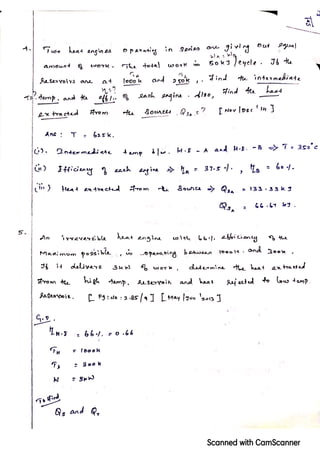 4. Two heat engines operating in series are giving out equal
amount of work. The total work is 50kJ/cycle. If the
Reservoirs are at 1000k and 250k, Find the intermediate
temp, and the effi. of each engine. Also, Find the heat
extracted from the Source Q =? [Nov/Dec' 'In]
Ans : T = 625k.
(i). Intermediate temp b/w. H.E - A and H.E. - B ⇒ T = 352°c
(ii) Efficiency of each engine ⇒ ηA = 37.5 %, ηB = 60 %.
(iii) Heat extracted from the Source ⇒ = 133.33 kJ
= 66.67 kJ.
5.
An irreversible heat engine with 66% efficiency of the
Maximum possible, is operating between 1000k and 300k,
If it delivers 3kW of work, determine the heat extracted
from the high temp, Reservoir and heat Rejected to low temp
Reservoir. [Pg: No: 2.85/9] [May/Jun '2013]
G.D.
= 66% = 0.66
TH = 1000k
= 300k
W = 3kW
To find
and
Scanned with CamScanner